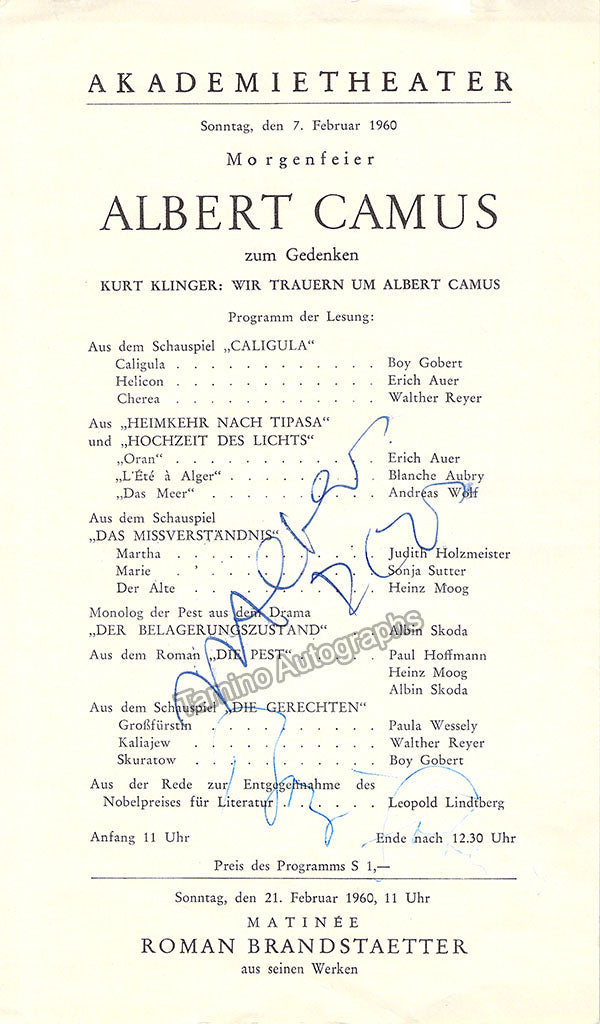 AKADEMIETHEATER
Sonntag, den 7. Februar 1960
Morgenfeier
ALBERT CAMUS
zum Gedenken
KURT KLINGER: WIR TRAUERN UM ALBERT CAMUS
Programm der Lesung:
Aus dem Schauspiel „CALIGULA“
Caligula . . . . . . . . . . . . Boy Gobert
Helicon . . . . . . . . . . . . Erich Auer
Cherea . . . . . . . . . . . . Walther Reyer
Aus „HEIMKEHR NACH TIPASA“
und „HOCHZEIT DES LICHTS“
„Oran“ . . . . . . . . . . . . Erich Auer
„L'Été à Alger“ . . . . . . . . . Blanche Aubry
„Das Meer“ . . . . . . . . . . Andreas Wolf
Aus dem Schauspiel
„DAS MISSVERSTÄNDNIS“
Martha . . . . . . . . . . . . Judith Holzmeister
Marie . . . . . . . . . . . . Sonja Sutter
Der Alte . . . . . . . . . . . Heinz Moog
Monolog der Pest aus dem Drama
„DER BELAGERUNGSZUSTAND“ . . Albin Skoda
Aus dem Roman „DIE PEST“ . . . . . Paul Hoffmann
Heinz Moog
Albin Skoda
Aus dem Schauspiel „DIE GERECHTEN“
Großfürstin . . . . . . . . . . Paula Wessely
Kaliajew . . . . . . . . . . . Walther Reyer
Skuratow . . . . . . . . . . . Boy Gobert
Aus der Rede zur Entgegennahme des
Nobelpreises für Literatur . . . . . . Leopold Lindtberg
Anfang 11 Uhr Ende nach 12.30 Uhr
Preis des Programms S 1,—
Sonntag, den 21. Februar 1960, 11 Uhr
MATINÉE
ROMAN BRANDSTAETTER
aus seinen Werken
Tamino Autographs